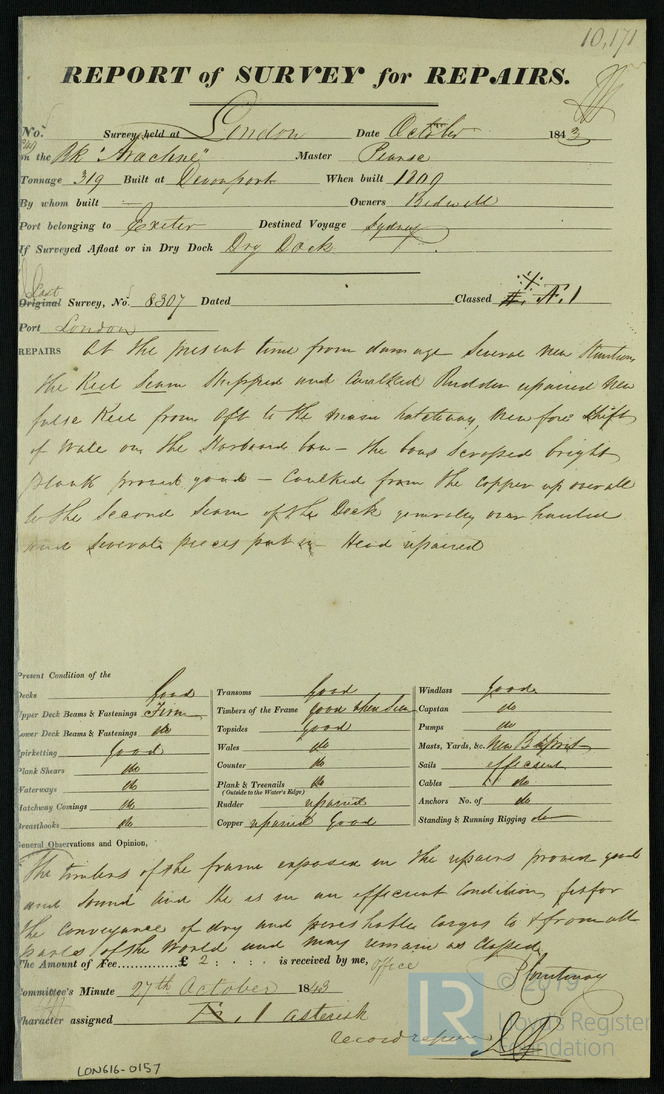 10,171
REPORT of SURVEY for REPAIRS.
No. Survey held at London Date October 1843
on the Bk "Arachne" Master Pearse
Tonnage 319 Built at Devonport When built 1809
By whom built — Owners Bidwell
Port belonging to Exeter Destined Voyage Sydney
If Surveyed Afloat or in Dry Dock Dry Dock
Last
Original Survey, No. 8307 Dated Classed Æ. 1
Port London
REPAIRS At the present time from damage Several new Stantions
the Keel Seam Stripped and Caulked Rudder repaired New
false Keel from aft to the main hatchway, New fore Shift
of Wale on the Starboard bow – the bows Scraped bright
Plank proved good – Caulked from the Copper up overall
to the Second Seam of the Deck generally over hauled
and Several pieces put in – Head repaired
Present Condition of the
Decks Good
Upper Deck Beams & Fastenings Firm
Lower Deck Beams & Fastenings do
Spirketting Good
Plank Shears do
Waterways do
Hatchway Comings do
Breasthooks do
Transoms Good
Timbers of the Frame Good when Seen
Topsides Good
Wales do
Counter do
Plank & Treenails do
(Outside to the Water's Edge)
Rudder repaired
Copper repaired Good
Windlass Good
Capstan do
Pumps do
Masts, Yards, &c. New Bowsprit
Sails efficient
Cables do
Anchors No. of do
Standing & Running Rigging do
General Observations and Opinion,
The timbers of the frame exposed in the repairs proven good
and sound and she is in an efficient Condition fit for
the Conveyance of dry and perishable Cargos to & from all
parts of the World and may remain as Classed
The Amount of Fee..............£ 2 : . : . is received by me, office
Courtenay
Committee's Minute 27th October 1843
Character assigned Æ. 1 asterisk
record repairs
LON616-0157
LR © 2019
Lloyd's Register
Foundation